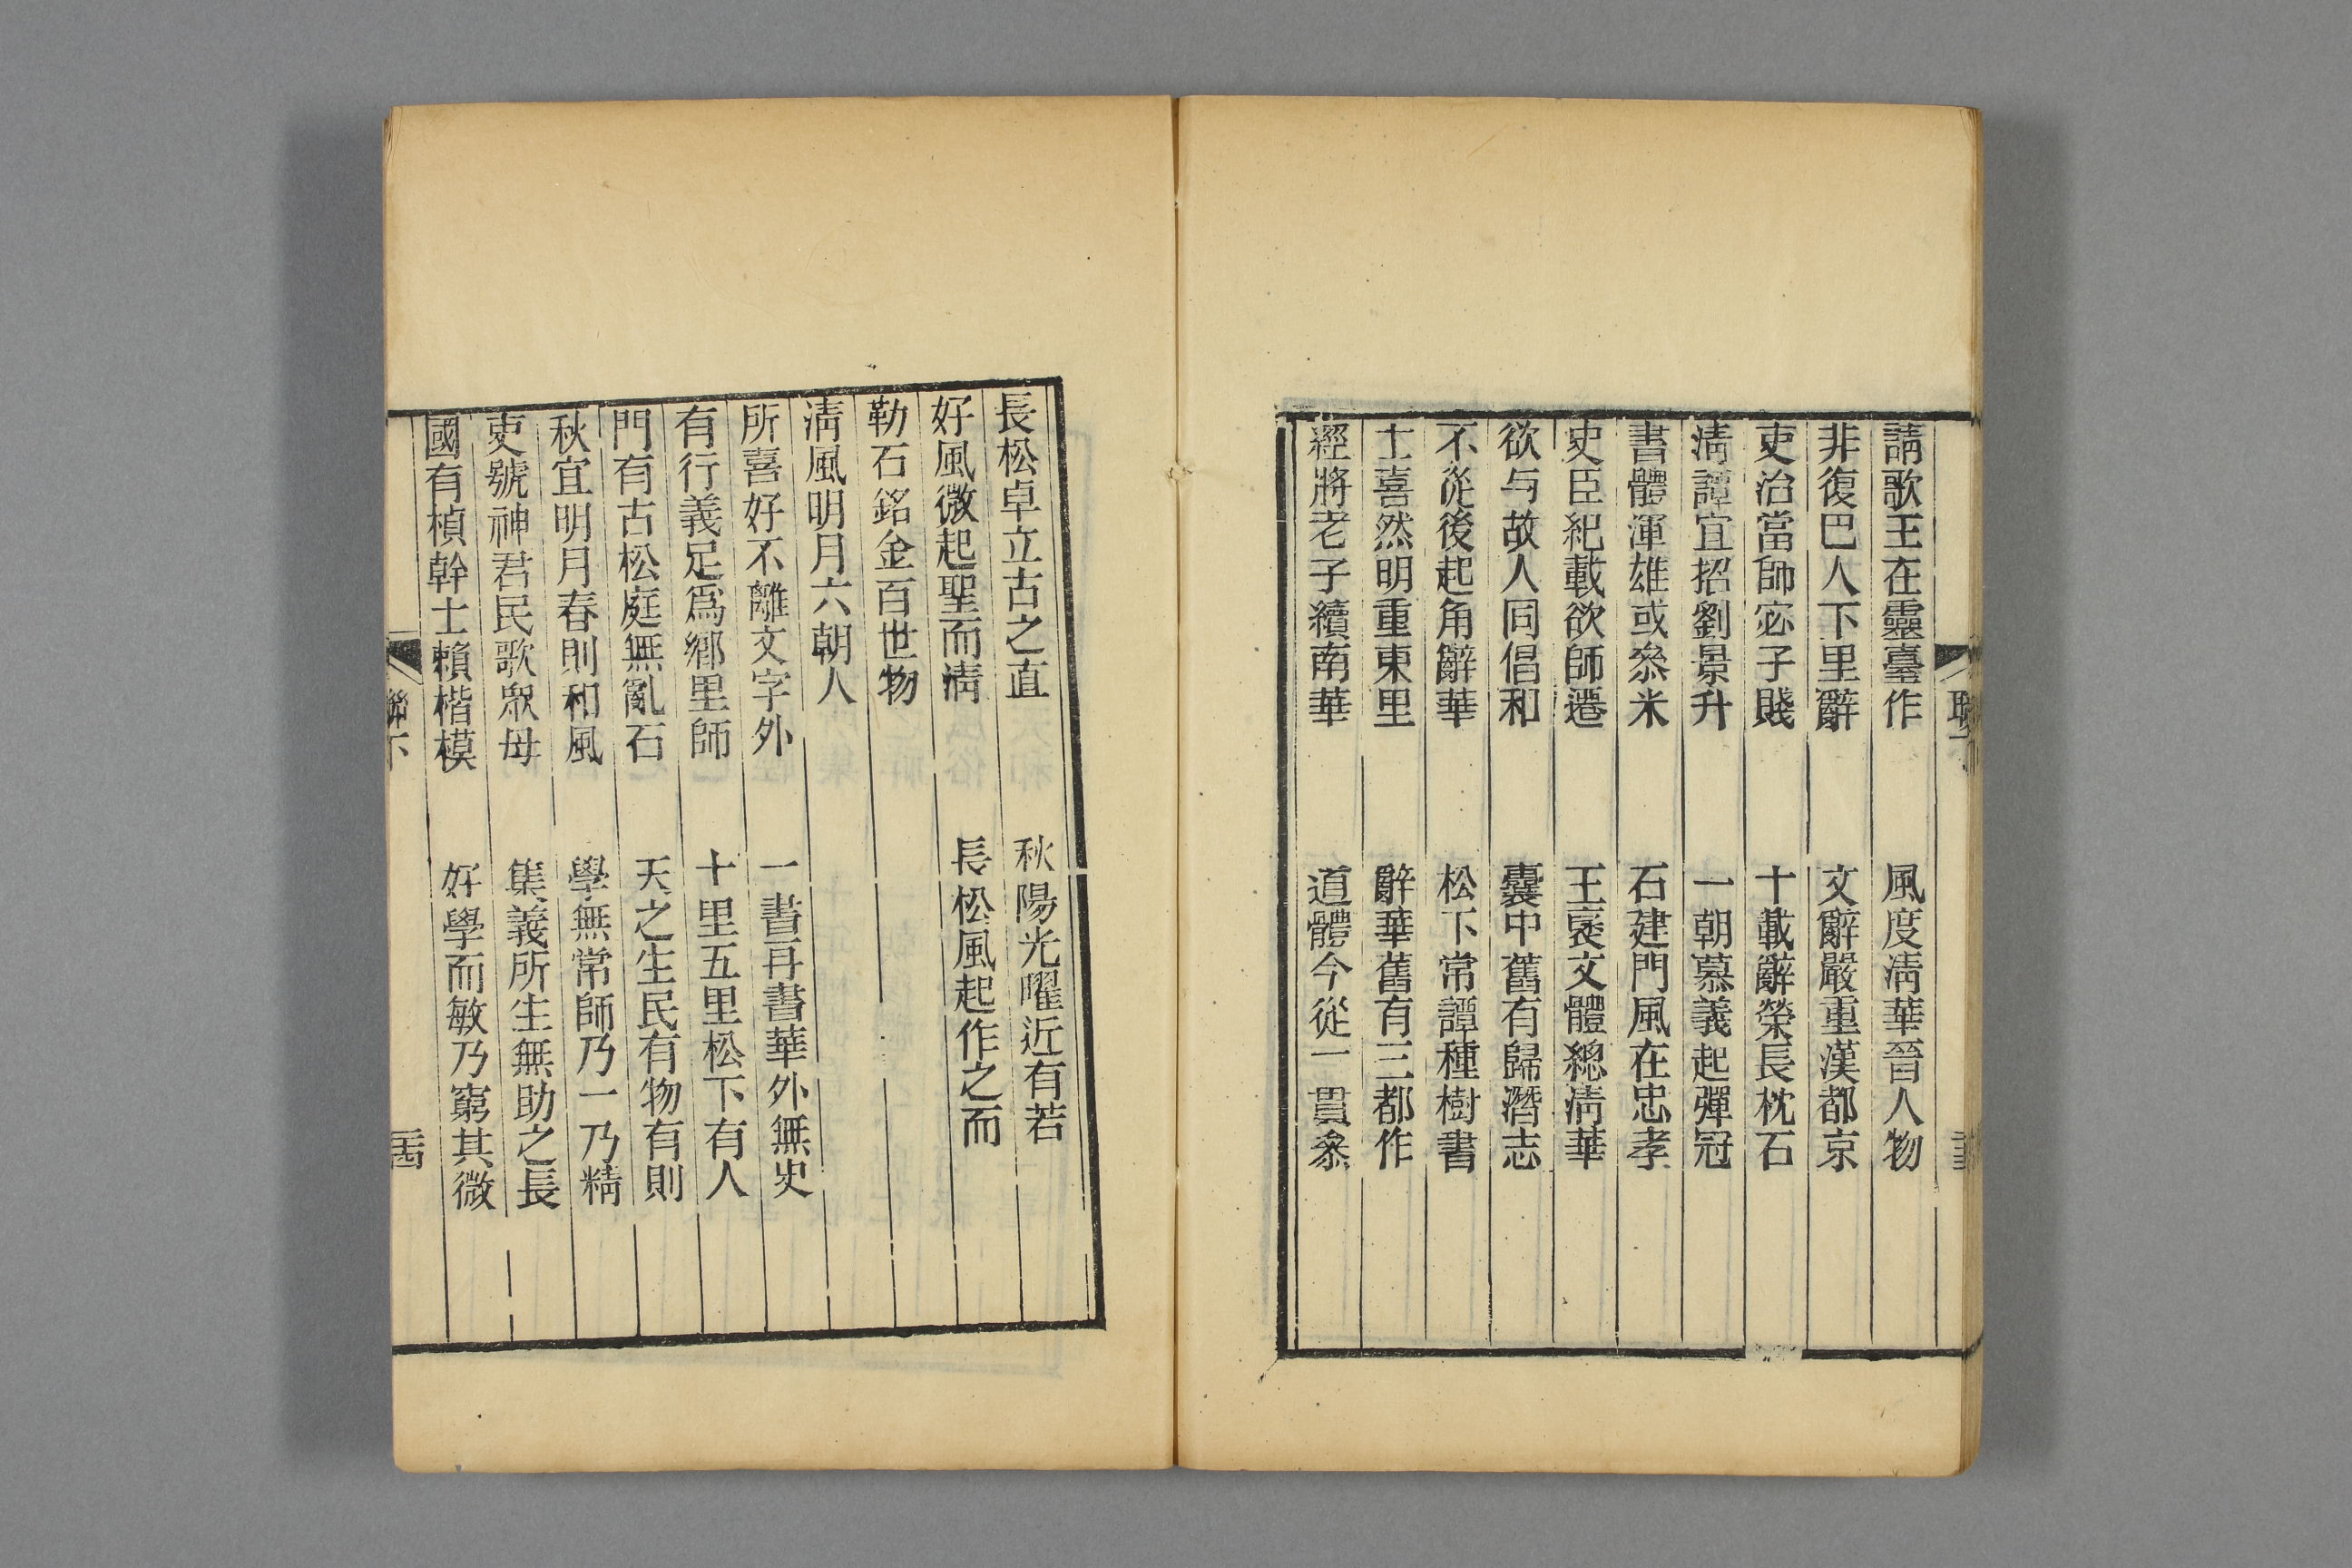 請歌王在靈臺作　風度淸華晉人物
非復巴人下里辭　文辭嚴重漢都京
吏治當師宓子賤　十載辭榮長枕石
淸譚宜招劉景升　一朝慕義起彈冠
書體渾雄或叅米　石建門風在忠孝
史臣紀載欲師遷　王襃文體總淸華
欲与故人同倡和　囊中舊有歸潛志
不從後起角辭華　松下常譚種樹書
士喜然明重東里　辭華舊有三都作
經將老子續南華　道體今從一貫叅
長松卓立古之直　秋陽光曜近有若
好風微起聖而淸　長松風起作之而
勒石銘金百世物
淸風明月六朝人
所喜好不離文字外　一書再書華外無史
有行義足爲鄕里師　十里五里松下有人
門有古松庭無亂石　天之生民有物有則
秋宜明月春則和風　學無常師乃一乃精
吏號神君民歌衆母　集義所生無助之長
國有楨幹士賴楷模　好學而敏乃窮其微
聯下